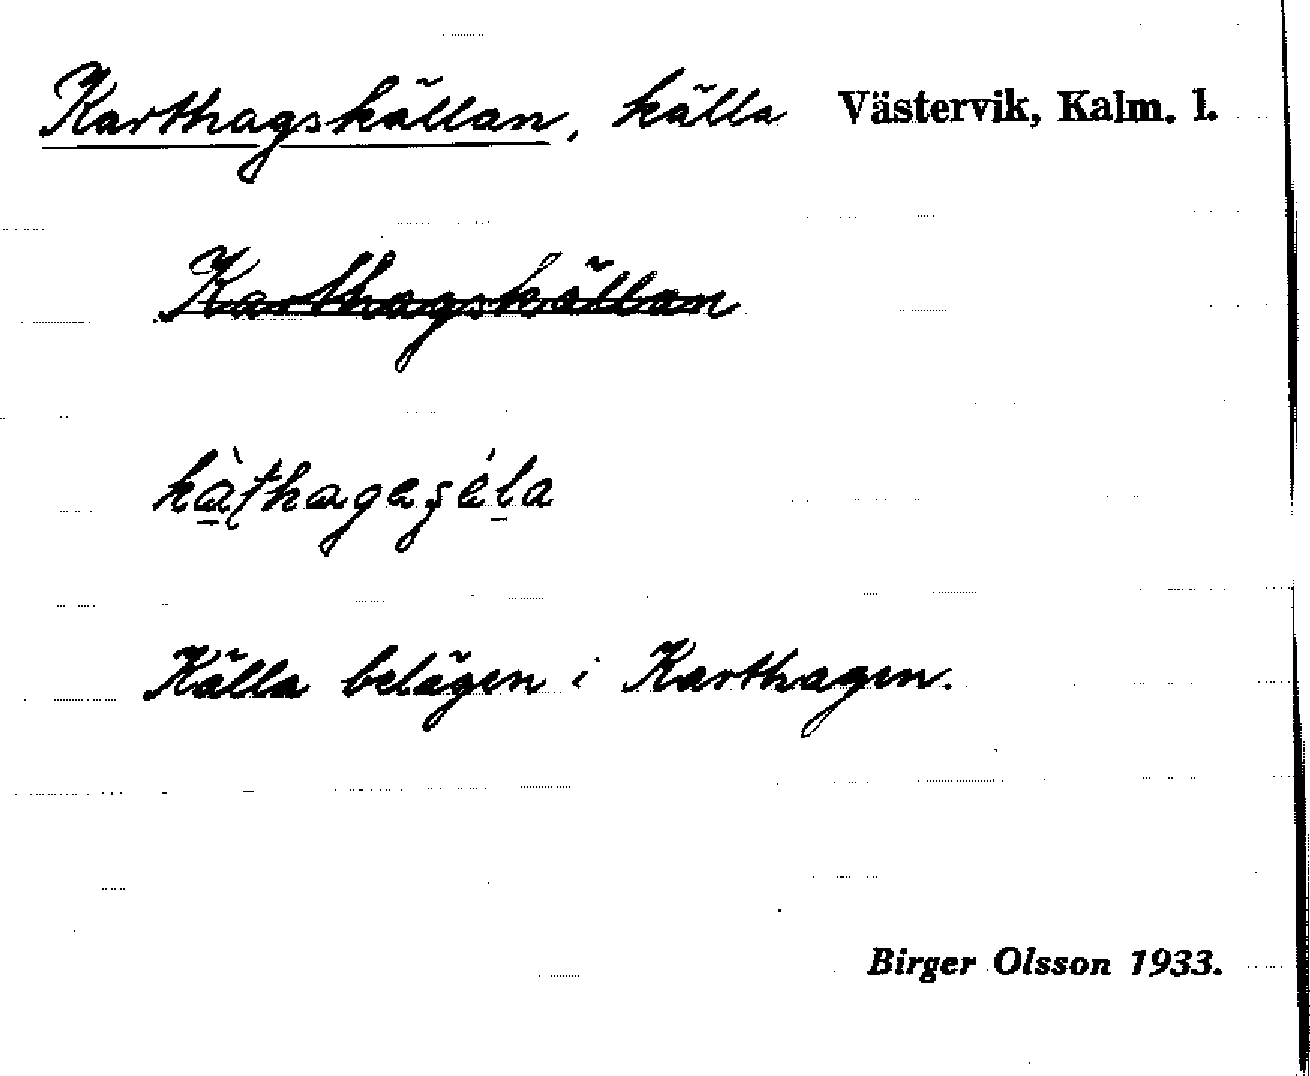 Karthagskällan, källa Västervik, Kalm. l.
Karthagskällan
Källa belägen i Karthagen.
Birger Olsson 1933.